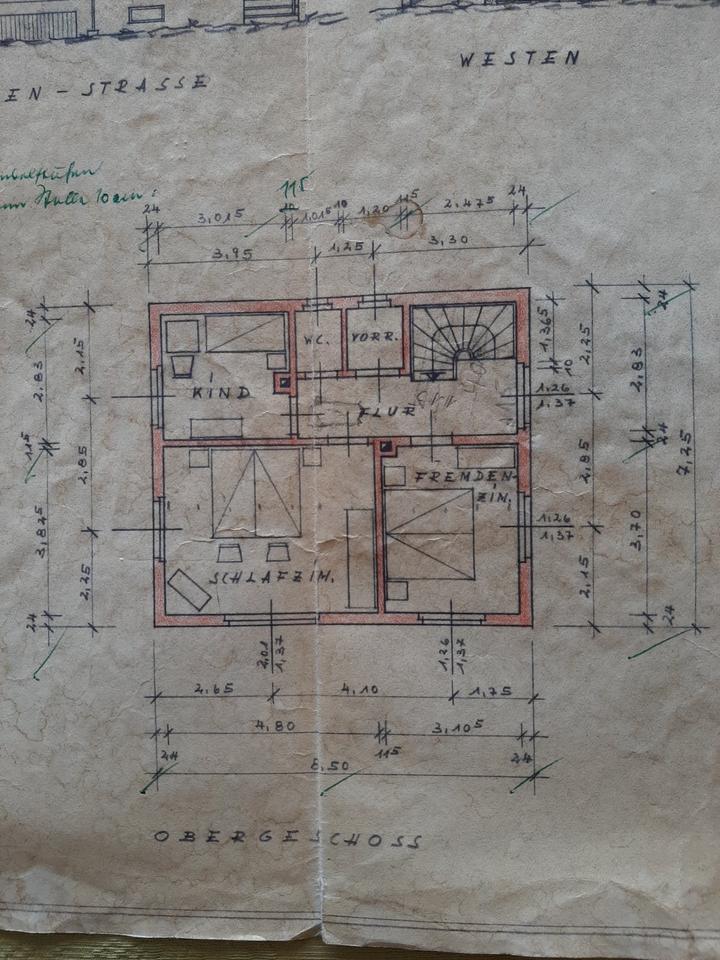 WESTEN
EN-STRASSE
11⁵
24 3,01⁵ 10 1,01⁵ 10 1,20 11⁵ 2,47⁵ 24
3,95 1,25 3,30
24 2,83 11⁵ 3,82⁵ 24
2,15 2,85 2,25
W.C. VORR.
KIND
FLUR
FREMDEN-
ZIM.
SCHLAFZIM.
1,36⁵ 10
1,26
1,37
1,26
1,37
2,25 2,85 2,15
24 2,83 24 3,70 24
7,25
2,01
1,37
1,26
1,37
2,65 4,10 1,75
24 4,80 11⁵ 3,10⁵ 24
8,50
OBERGESCHOSS